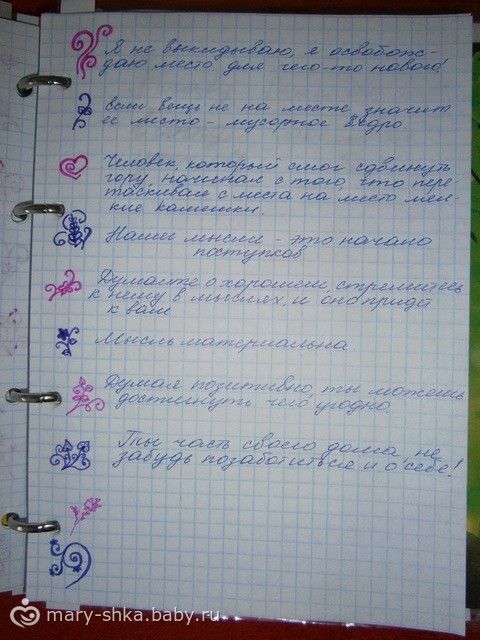 Я не выкидываю, я освобож-
даю место для чего-то нового!
Если вещь не на месте, значит
её место - мусорное ведро
Человек, который смог сдвинуть
гору, начинал с того, что пере-
таскивал с места на место мел-
кие камешки.
Наши мысли - это начало
поступков
Думайте о хорошем, стремитесь
к нему в мыслях, и оно придёт
к вам
Мысль материальна.
Думая позитивно, ты можешь
достигнуть чего угодно.
Ты часть своего дома, не
забудь позаботиться и о себе!
mary-shka.baby.ru